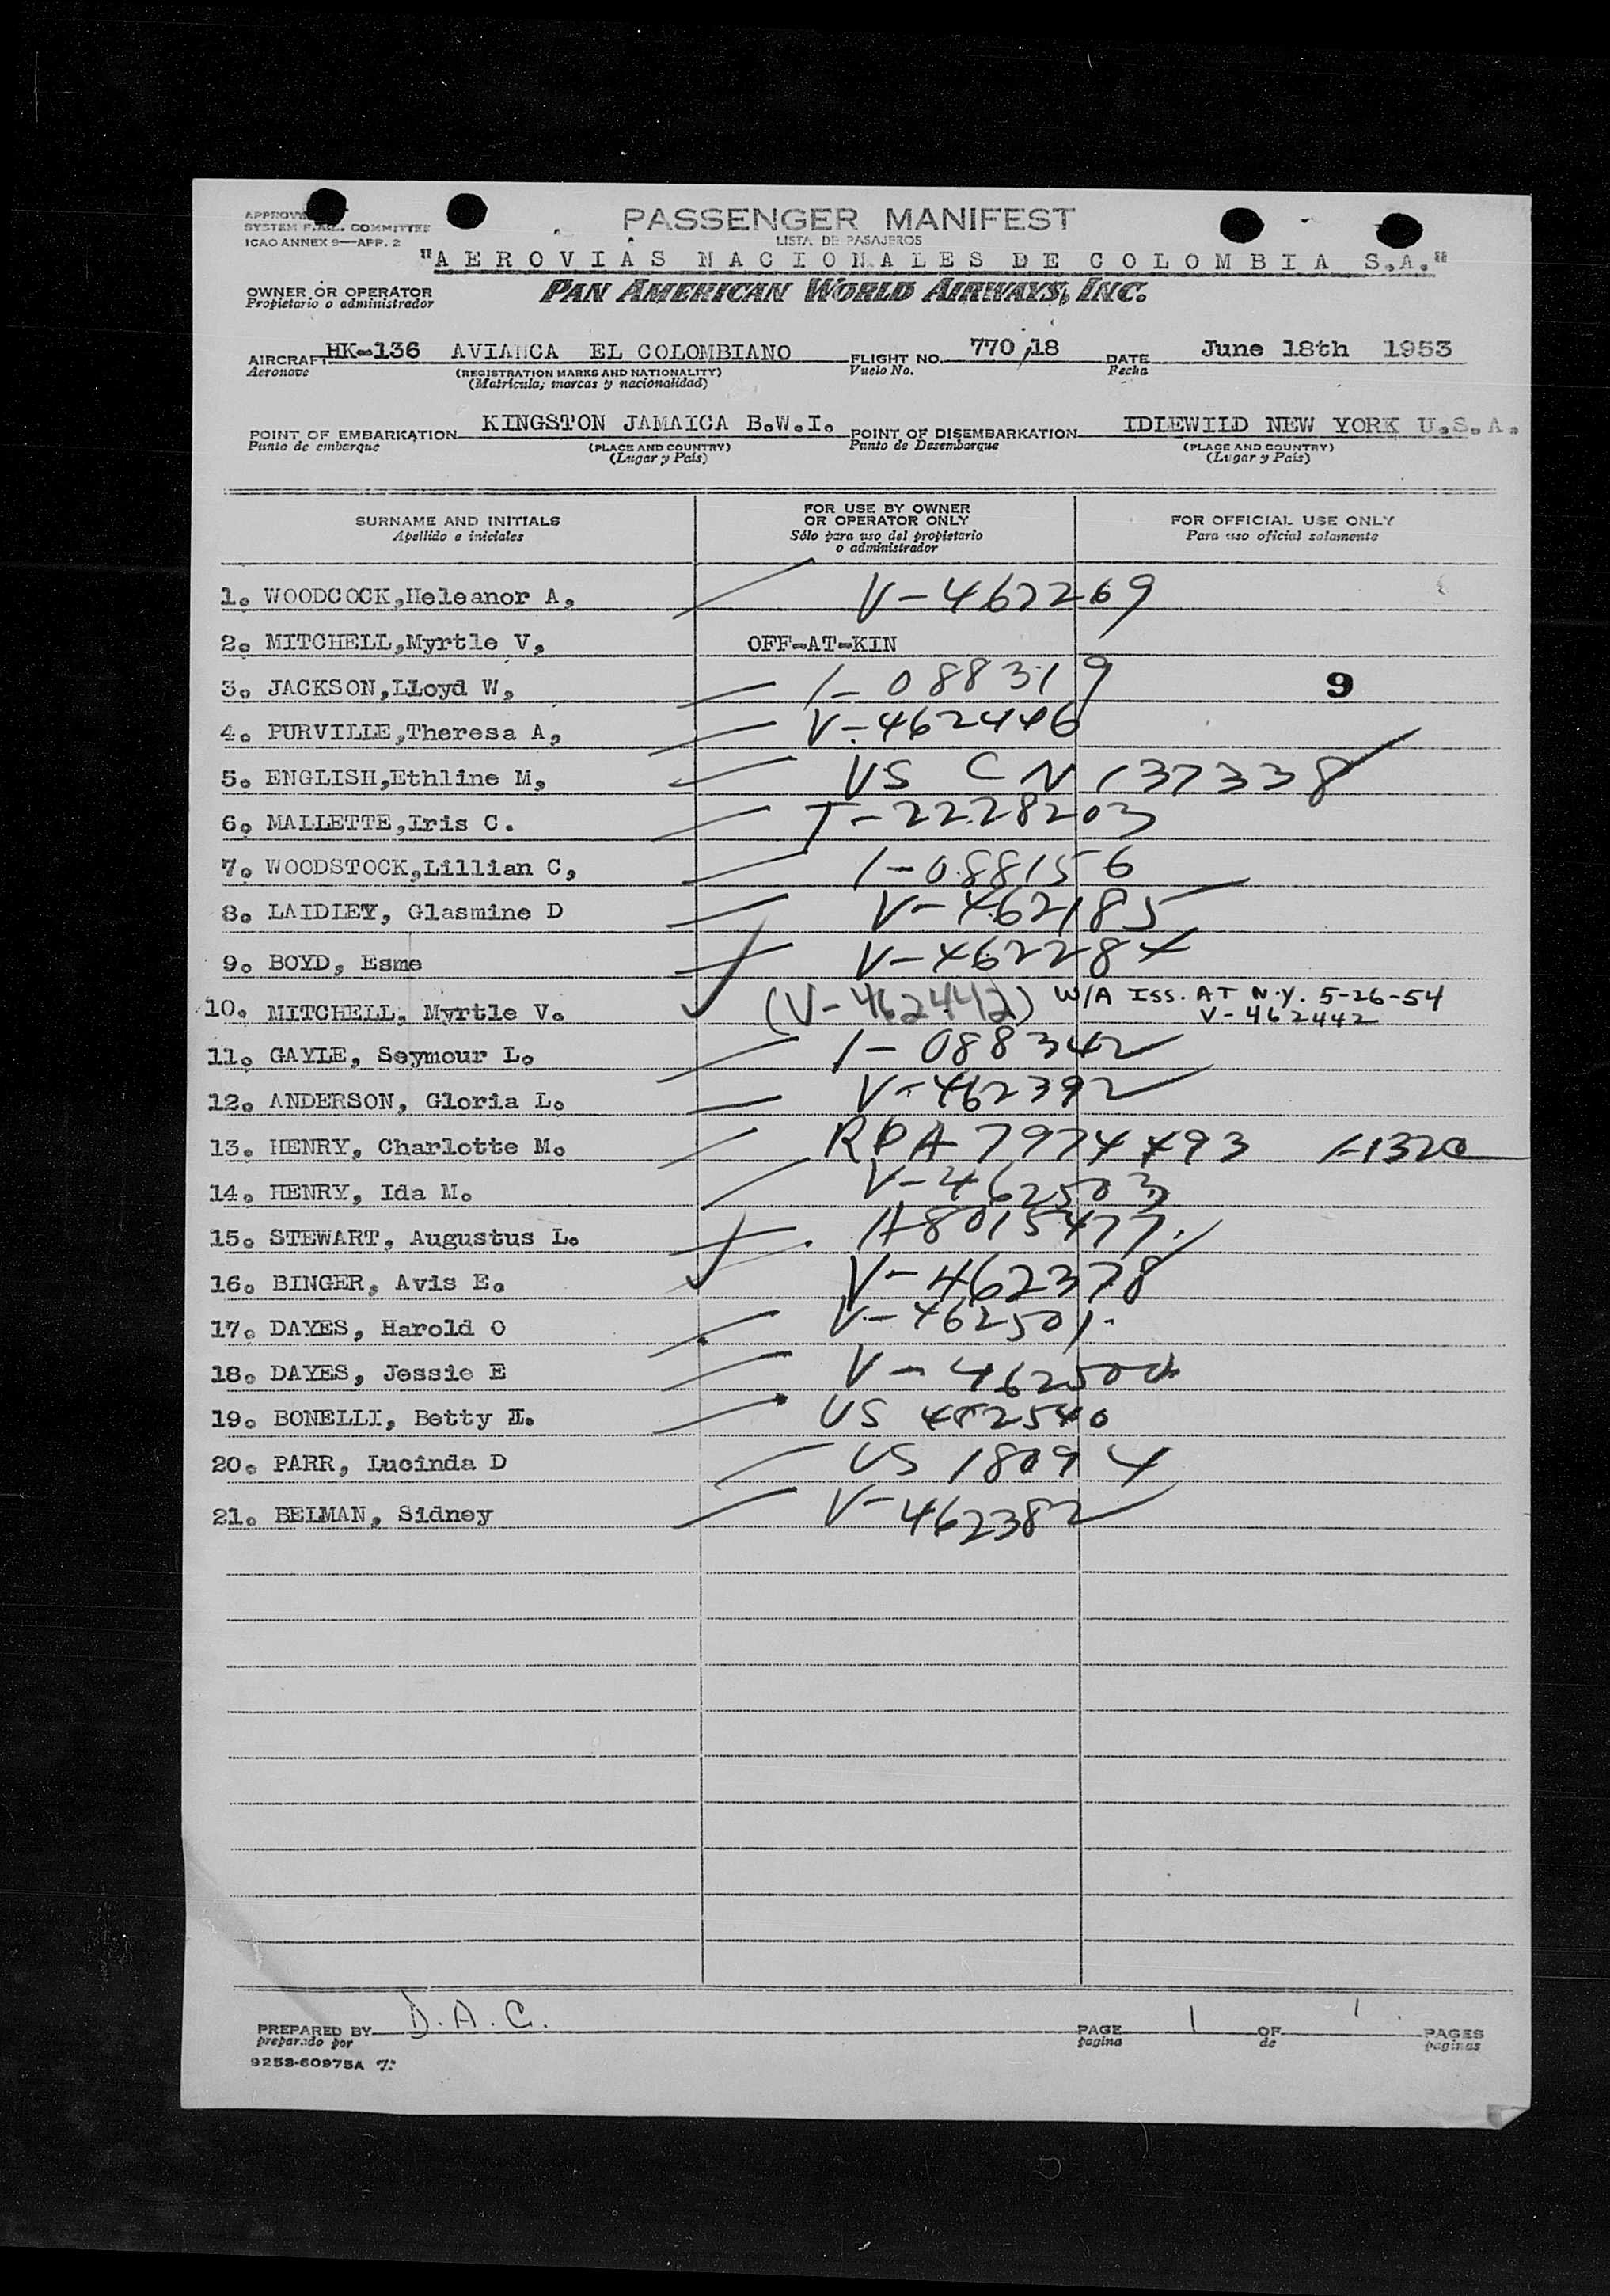 APPROVED
SYSTEM F.A.L. COMMITTEE
ICAO ANNEX 9—APP. 2
PASSENGER MANIFEST
LISTA DE PASAJEROS
"AEROVIAS NACIONALES DE COLOMBIA S.A."
OWNER OR OPERATOR PAN AMERICAN WORLD AIRWAYS, INC.
Propietario o administrador
AIRCRAFT HK-136 AVIANCA EL COLOMBIANO FLIGHT NO. 770/18 DATE June 18th 1953
Aeronave (REGISTRATION MARKS AND NATIONALITY) Vuelo No. Fecha
(Matrícula, marcas y nacionalidad)
POINT OF EMBARKATION KINGSTON JAMAICA B.W.I. POINT OF DISEMBARKATION IDLEWILD NEW YORK U.S.A.
Punto de embarque (PLACE AND COUNTRY) Punto de Desembarque (PLACE AND COUNTRY)
(Lugar y País) (Lugar y País)
SURNAME AND INITIALS
Apellido e iniciales
FOR USE BY OWNER
OR OPERATOR ONLY
Sólo para uso del propietario
o administrador
FOR OFFICIAL USE ONLY
Para uso oficial solamente
1. WOODCOCK,Heleanor A, V-462269
2. MITCHELL,Myrtle V, OFF-AT-KIN
3. JACKSON,Lloyd W, 1-088319 9
4. PURVILLE,Theresa A, V-462446
5. ENGLISH,Ethline M, VS CN 137338
6. MALLETTE,Iris C. T-2228203
7. WOODSTOCK,Lillian C, 1-088156
8. LAIDLEY, Glasmine D V-462185
9. BOYD, Esme V-462284
10. MITCHELL, Myrtle V. (V-462442) W/A ISS. AT N.Y. 5-26-54
V-462442
11. GAYLE, Seymour L. 1-088342
12. ANDERSON, Gloria L. V-462392
13. HENRY, Charlotte M. RPA 7974493
14. HENRY, Ida M. V-462503
15. STEWART, Augustus L. A8015477
16. BINGER, Avis E. V-462378
17. DAYES, Harold O V-462501
18. DAYES, Jessie E
19. BONELLI, Betty I. US
20. PARR, Lucinda D US 18094
21. BELMAN, Sidney V-462382
PREPARED BY D.A.C. PAGE 1 OF 1 PAGES
preparado por pagina de paginas
9253-60975A